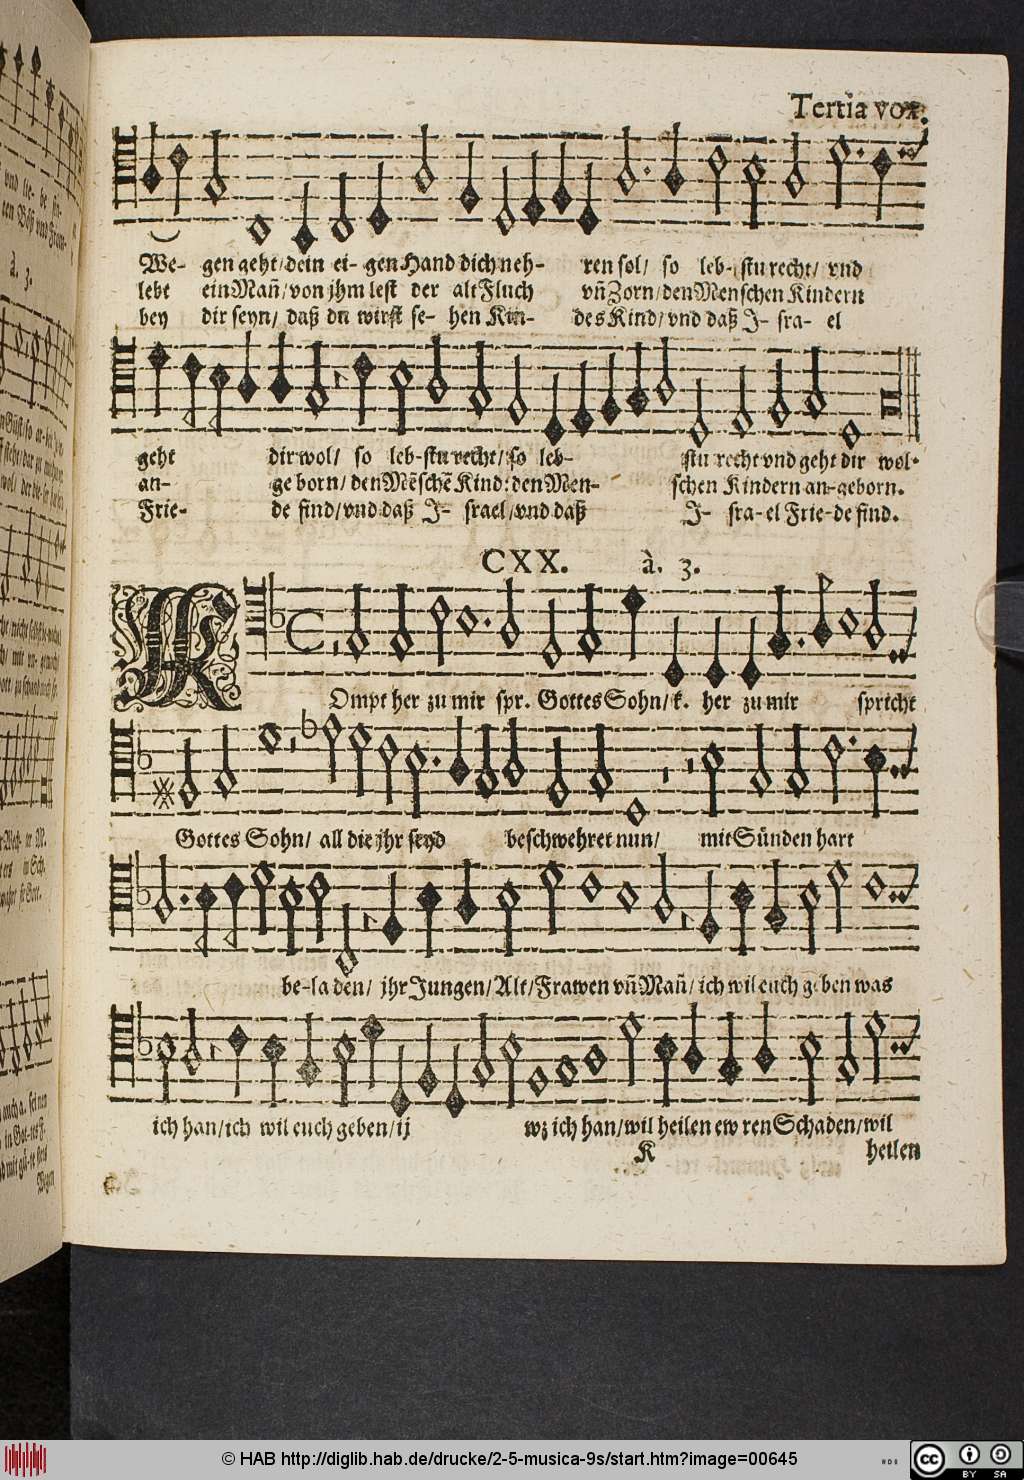 Tertia vox.
We- gen geht/dein ei- gen Hand dich neh- ren sol/ so leb- stu recht/ vnd
lebt ein Mañ/von jhm lest der alt Fluch vñ Zorn/den Menschen Kindern
bey dir seyn/ daß du wirst se- hen Kin- des Kind/vnd daß J- sra- el
geht dir wol/ so leb-stu recht/so leb- stu recht vnd geht dir wol.
an- ge born/den Mẽschẽ Kind:den Men- schen Kindern an-geborn.
Frie- de find/vnd daß J- srael/vnd daß J- sra-el Frie-de find.
CXX. à. 3.
KOmpt her zu mir spr. Gottes Sohn/k. her zu mir spricht
Gottes Sohn/ all die jhr seyd beschwehret nun/ mit Sünden hart
be-laden/ jhr Jungen/Alt/Frawen vñ Mañ/ich wil euch geben was
ich han/ich wil euch geben/ij wz ich han/wil heilen ewren Schaden/wil
K heilen
© HAB http://diglib.hab.de/drucke/2-5-musica-9s/start.htm?image=00645
cc BY SA